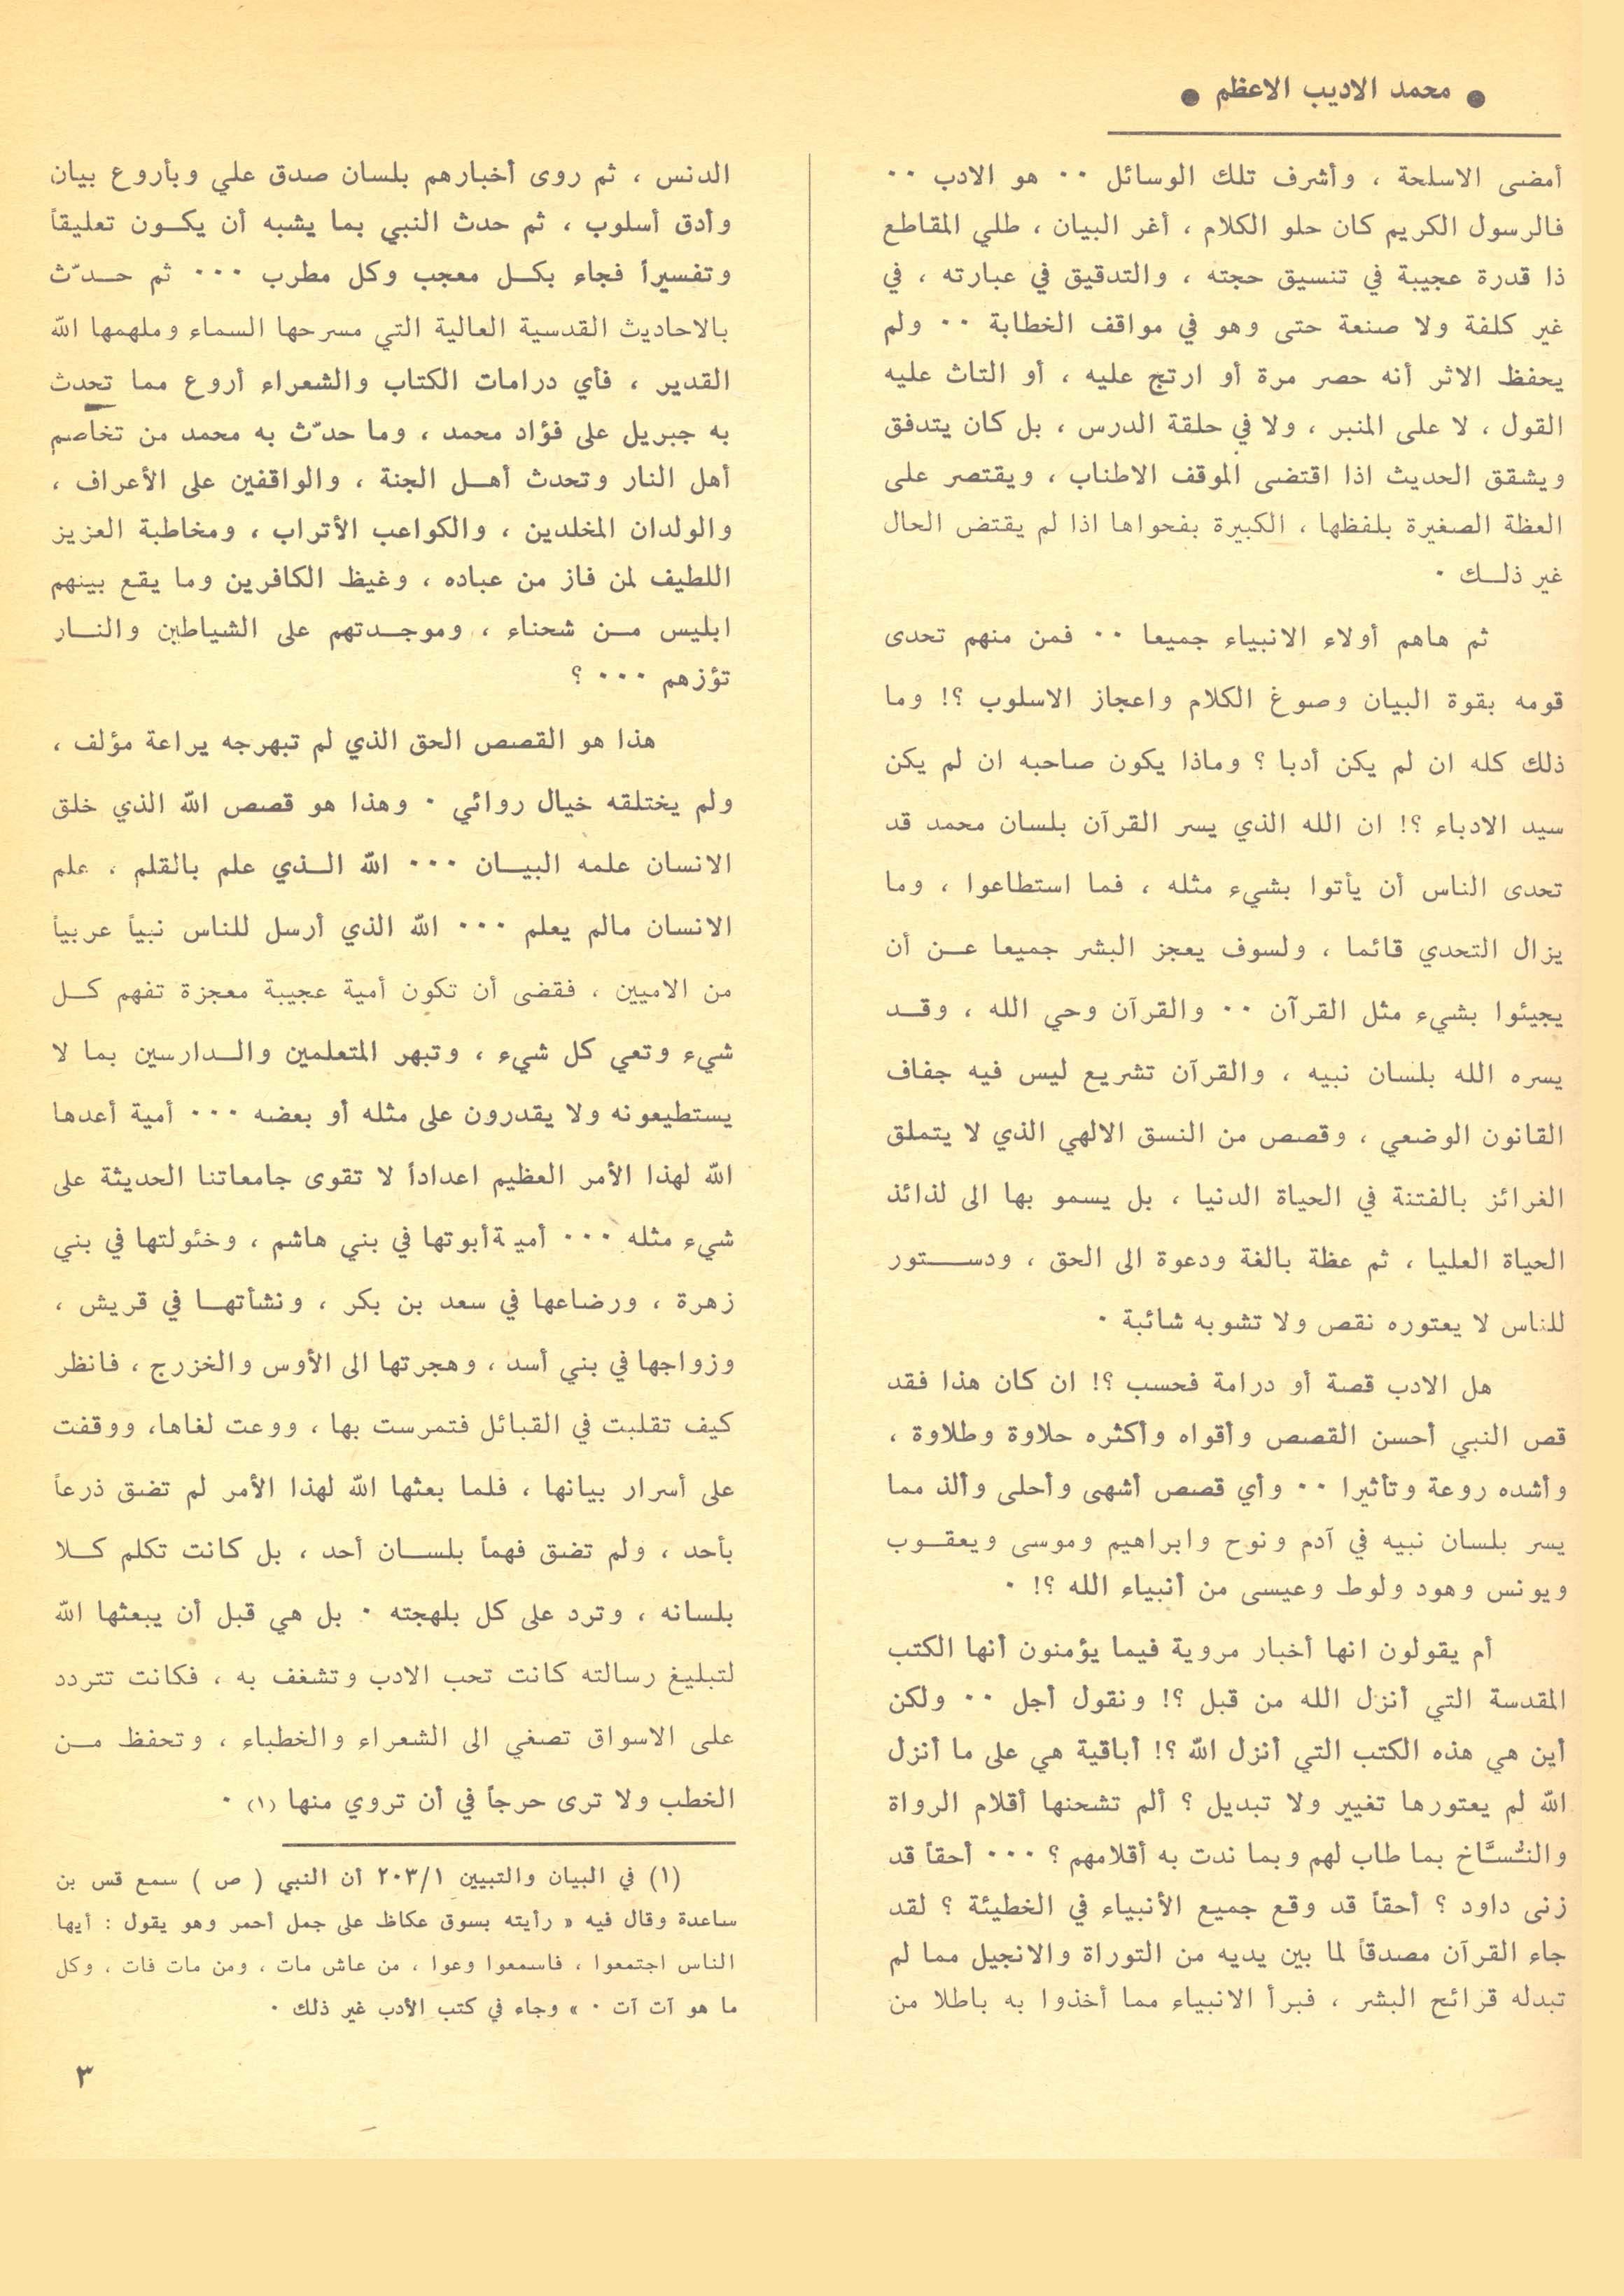 ● محمد الاديب الاعظم ●
أمضى الاسلحة ، وأشرف تلك الوسائل ٠٠ هو الادب ٠٠
فالرسول الكريم كان حلو الكلام ، أغر البيان ، طلي المقاطع
ذا قدرة عجيبة في تنسيق حجته ، والتدقيق في عبارته ، في
غير كلفة ولا صنعة حتى وهو في مواقف الخطابة ٠٠ ولم
يحفظ الاثر أنه حصر مرة أو ارتج عليه ، أو التاث عليه
القول ، لا على المنبر ، ولا في حلقة الدرس ، بل كان يتدفق
ويشقق الحديث اذا اقتضى الموقف الاطناب ، ويقتصر على
العظة الصغيرة بلفظها ، الكبيرة بفحواها اذا لم يقتض الحال
غير ذلــك ٠
ثم هاهم أولاء الانبياء جميعا ٠٠ فمن منهم تحدى
قومه بقوة البيان وصوغ الكلام واعجاز الاسلوب ؟! وما
ذلك كله ان لم يكن أدبا ؟ وماذا يكون صاحبه ان لم يكن
سيد الادباء ؟! ان الله الذي يسر القرآن بلسان محمد قد
تحدى الناس أن يأتوا بشيء مثله ، فما استطاعوا ، وما
يزال التحدي قائما ، ولسوف يعجز البشر جميعا عــن أن
يجيئوا بشيء مثل القرآن ٠٠ والقرآن وحي الله ، وقــد
يسره الله بلسان نبيه ، والقرآن تشريع ليس فيه جفاف
القانون الوضعي ، وقصص من النسق الالهي الذي لا يتملق
الغرائز بالفتنة في الحياة الدنيا ، بل يسمو بها الى لذائذ
الحياة العليا ، ثم عظة بالغة ودعوة الى الحق ، ودســـتور
للناس لا يعتوره نقص ولا تشوبه شائبة ٠
هل الادب قصة أو درامة فحسب ؟! ان كان هذا فقد
قص النبي أحسن القصص وأقواه وأكثره حلاوة وطلاوة ،
وأشده روعة وتأثيرا ٠٠ وأي قصص أشهى وأحلى وألذ مما
يسر بلسان نبيه في آدم ونوح وابراهيم وموسى ويعقــوب
ويونس وهود ولوط وعيسى من أنبياء الله ؟! ٠
أم يقولون انها أخبار مروية فيما يؤمنون أنها الكتب
المقدسة التي أنزل الله من قبل ؟! ونقول أجل ٠٠ ولكن
أين هي هذه الكتب التي أنزل الله ؟! أباقية هي على ما أنزل
الله لم يعتورها تغيير ولا تبديل ؟ ألم تشحنها أقلام الرواة
والنُّسَّاخ بما طاب لهم وبما ندت به أقلامهم ؟ ٠٠٠ أحقاً قد
زنى داود ؟ أحقاً قد وقع جميع الأنبياء في الخطيئة ؟ لقد
جاء القرآن مصدقاً لما بين يديه من التوراة والانجيل مما لم
تبدله قرائح البشر ، فبرأ الانبياء مما أخذوا به باطلا من
الدنس ، ثم روى أخبارهم بلسان صدق علي وبأروع بيان
وأدق أسلوب ، ثم حدث النبي بما يشبه أن يكــون تعليقاً
وتفسيراً فجاء بكــل معجب وكل مطرب ٠٠٠ ثم حــدّث
بالاحاديث القدسية العالية التي مسرحها السماء وملهمها الله
القدير ، فأي درامات الكتاب والشعراء أروع مما تحدث
به جبريل على فؤاد محمد ، وما حدّث به محمد من تخاصم
أهل النار وتحدث أهــل الجنة ، والواقفين على الأعراف ،
والولدان المخلدين ، والكواعب الأتراب ، ومخاطبة العزيز
اللطيف لمن فاز من عباده ، وغيظ الكافرين وما يقع بينهم
ابليس مــن شحناء ، وموجــدتهم على الشياطين والنــار
تؤزهم ٠٠٠ ؟
هذا هو القصص الحق الذي لم تبهرجه يراعة مؤلف ،
ولم يختلقه خيال روائي ٠ وهذا هو قصص الله الذي خلق
الانسان علمه البيــان ٠٠٠ الله الــذي علم بالقلم ، علم
الانسان مالم يعلم ٠٠٠ الله الذي أرسل للناس نبياً عربياً
من الاميين ، فقضى أن تكون أمية عجيبة معجزة تفهم كــل
شيء وتعي كل شيء ، وتبهر المتعلمين والــدارسين بما لا
يستطيعونه ولا يقدرون على مثله أو بعضه ٠٠٠ أمية أعدها
الله لهذا الأمر العظيم اعداداً لا تقوى جامعاتنا الحديثة على
شيء مثله ٠٠٠ أمية أبوتها في بني هاشم ، وخئولتها في بني
زهرة ، ورضاعها في سعد بن بكر ، ونشأتهــا في قريش ،
وزواجها في بني أسد ، وهجرتها الى الأوس والخزرج ، فانظر
كيف تقلبت في القبائل فتمرست بها ، ووعت لغاها، ووقفت
على أسرار بيانها ، فلما بعثها الله لهذا الأمر لم تضق ذرعاً
بأحد ، ولم تضق فهماً بلســان أحد ، بل كانت تكلم كــلا
بلسانه ، وترد على كل بلهجته ٠ بل هي قبل أن يبعثها الله
لتبليغ رسالته كانت تحب الادب وتشغف به ، فكانت تتردد
على الاسواق تصغي الى الشعراء والخطباء ، وتحفظ مــن
الخطب ولا ترى حرجاً في أن تروي منها (١) ٠
(١) في البيان والتبيين ٢٠٣/١ أن النبي ( ص ) سمع قس بن
ساعدة وقال فيه « رأيته بسوق عكاظ على جمل أحمر وهو يقول : أيها
الناس اجتمعوا ، فاسمعوا وعوا ، من عاش مات ، ومن مات فات ، وكل
ما هو آت آت ٠ » وجاء في كتب الأدب غير ذلك ٠
٣